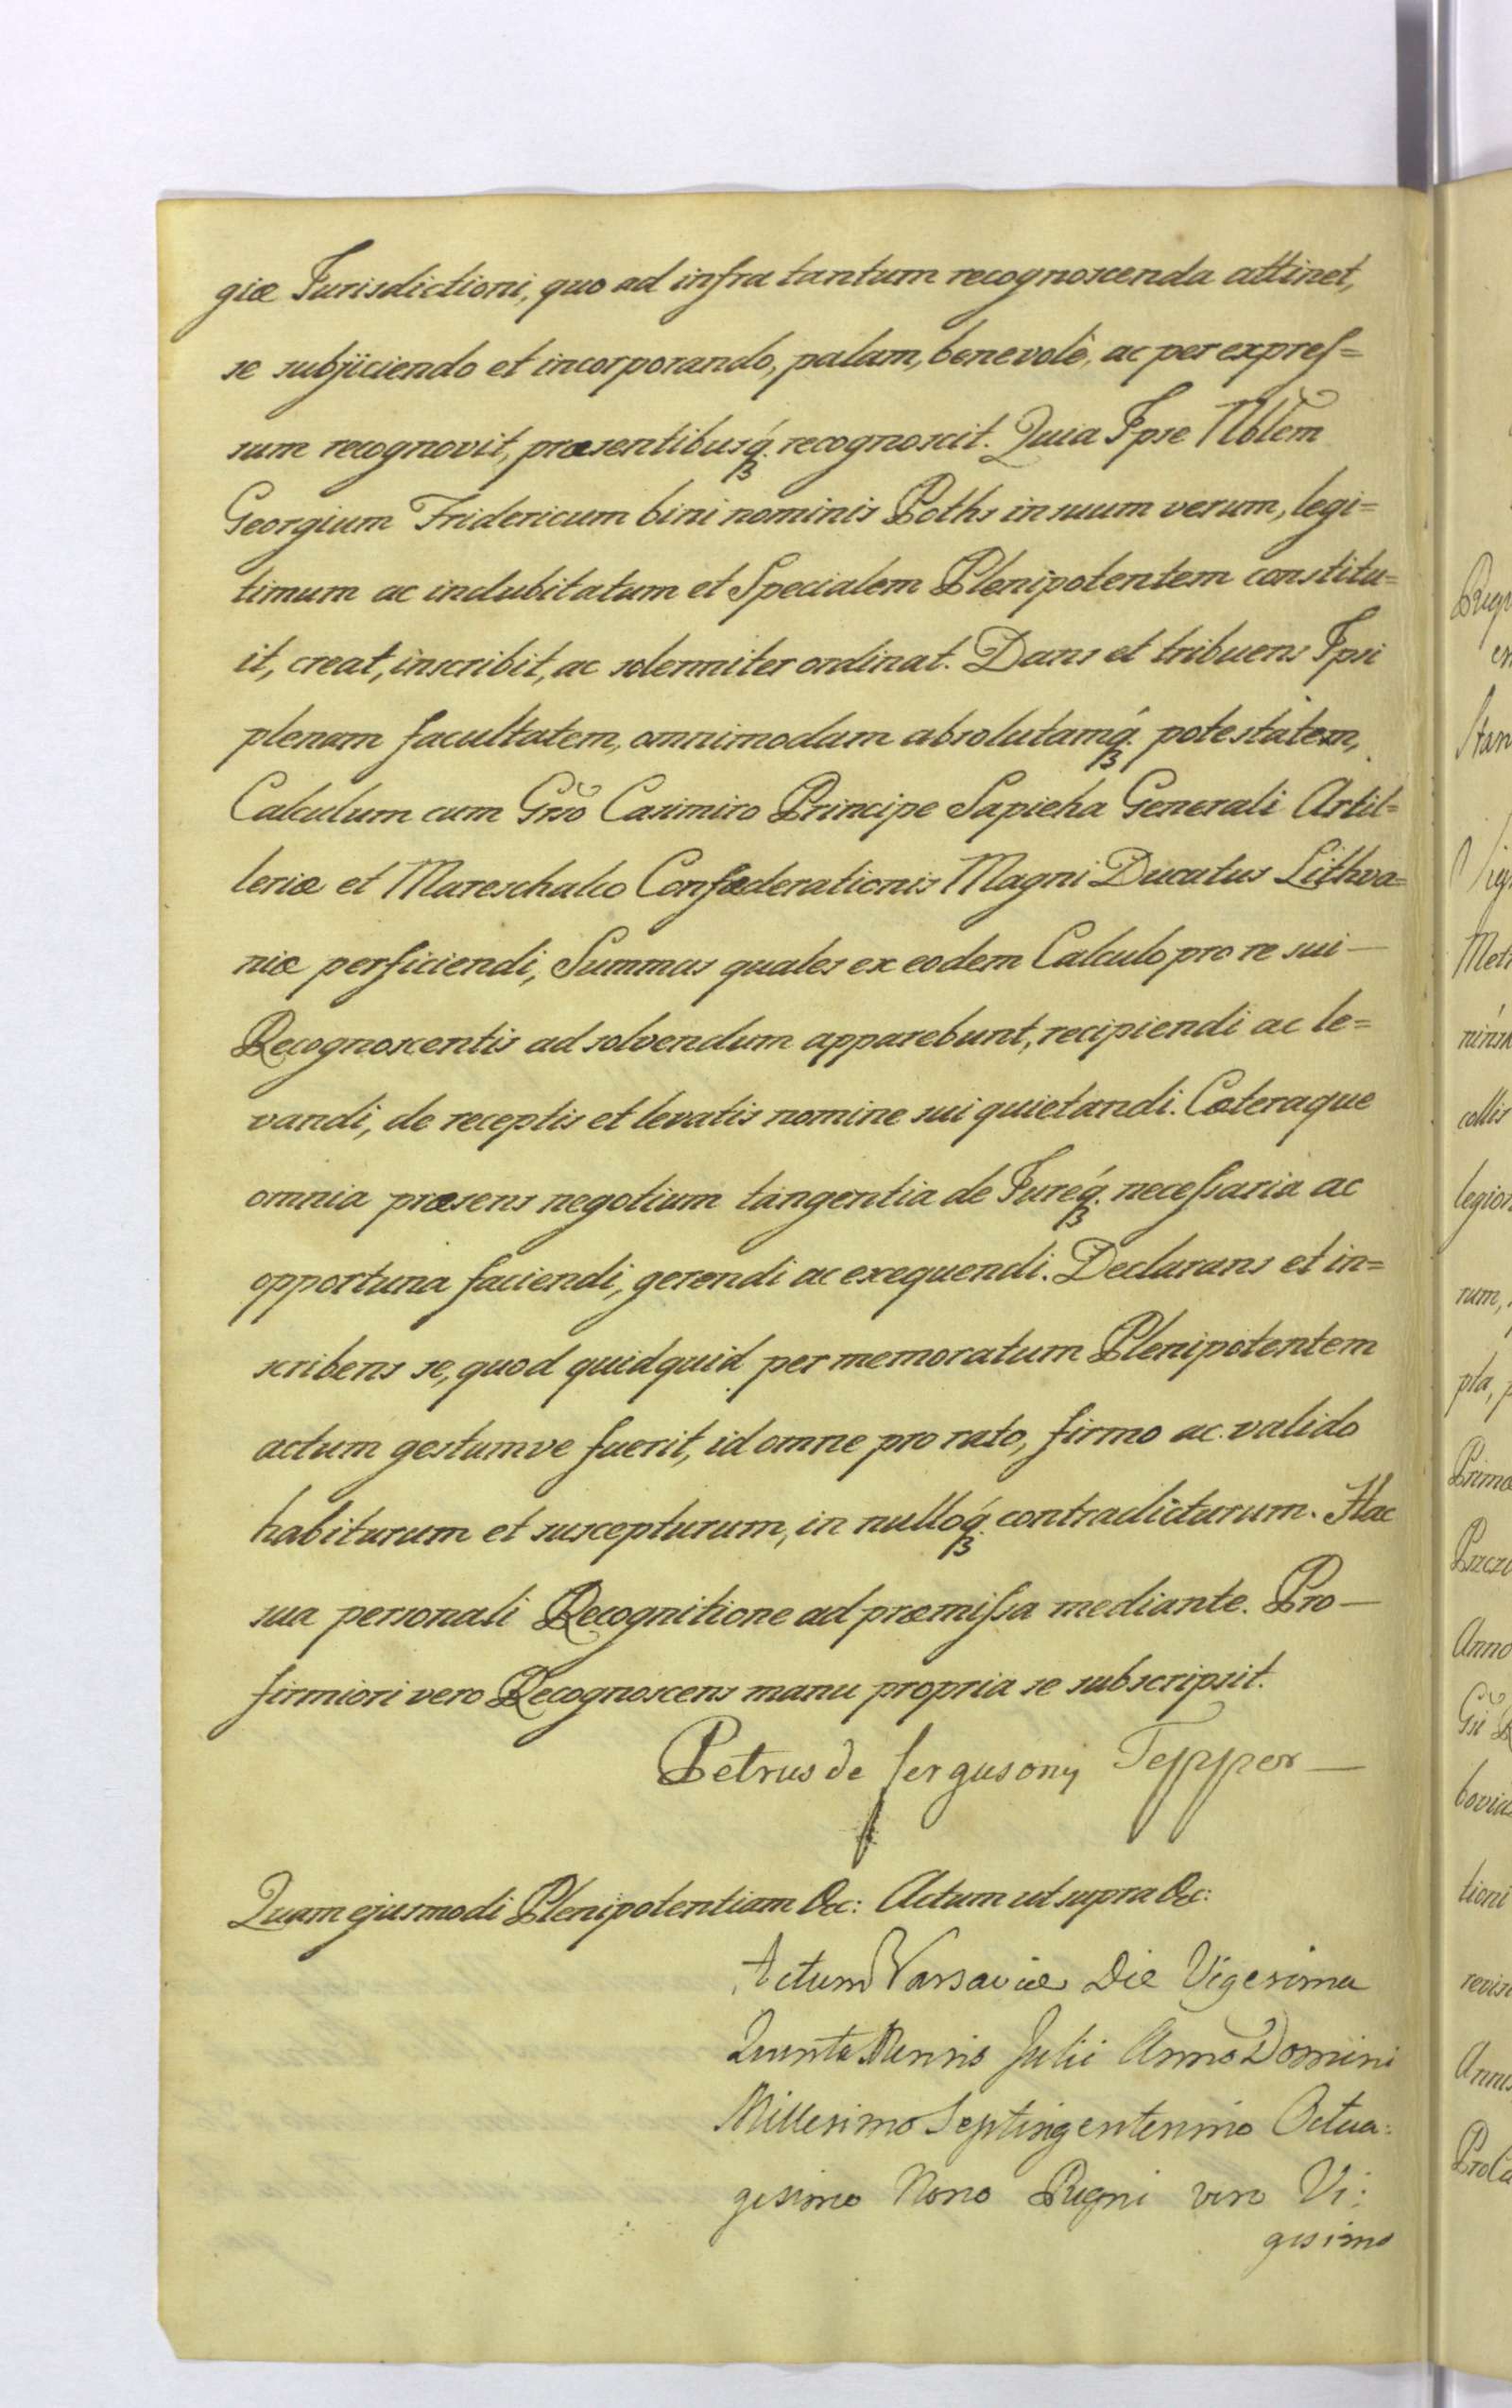 giæ Jurisdictioni, quo ad infra tantum recognoscenda attinet,
se subjiciendo et incorporando, palam, benevolè, ac per expres=
sum recognovit, præsentibusq́ꝫ recognoscit. Quia Ipse Nblem
Georgium Fridericum bini nominis Poths in suum verum, legi=
timum ac indubitatum et Specialem Plenipotentem constitu=
it, creat, inscribit, ac solenniter ordinat. Dans et tribuens Ipsi
plenam facultatem, omnimodam absolutamq́ꝫ potestatem,
Calculum cum Grso Casimiro Principe Sapieha Generali Artil=
leriæ et Mareschalco Confæderationis Magni Ducatus Lithva=
niæ perficiendi, Summas quales ex eodem Calculo pro re sui —
Recognoscentis ad solvendum apparebunt, recipiendi ac le=
vandi, de receptis et levatis nomine sui quietandi. Cæteraque
omnia præsens negotium tangentia de Jureq́ꝫ necessaria ac
opportuna faciendi, gerendi ac exequendi. Declarans et in=
scribens se, quod quidquid per memoratum Plenipotentem
actum gestumve fuerit, id omne pro rato, firmo ac valido
habiturum et suscepturum, in nulloq́ꝫ contradicturum. Hac
sua personali Recognitione ad præmissa mediante. Pro —
firmiori vero Recognoscens manu propria se subscripsit.
Petrus de fergusony Tepper —
Quam ejusmodi Plenipotentiam &c: Actum ut supra &c:
Actum Varsaviæ Die Vigesima
Quinta Mensis Julii Anno Domini
Millesimo Septingentesimo Octua:
gesimo Nono Regni vero Vi:
gesimo